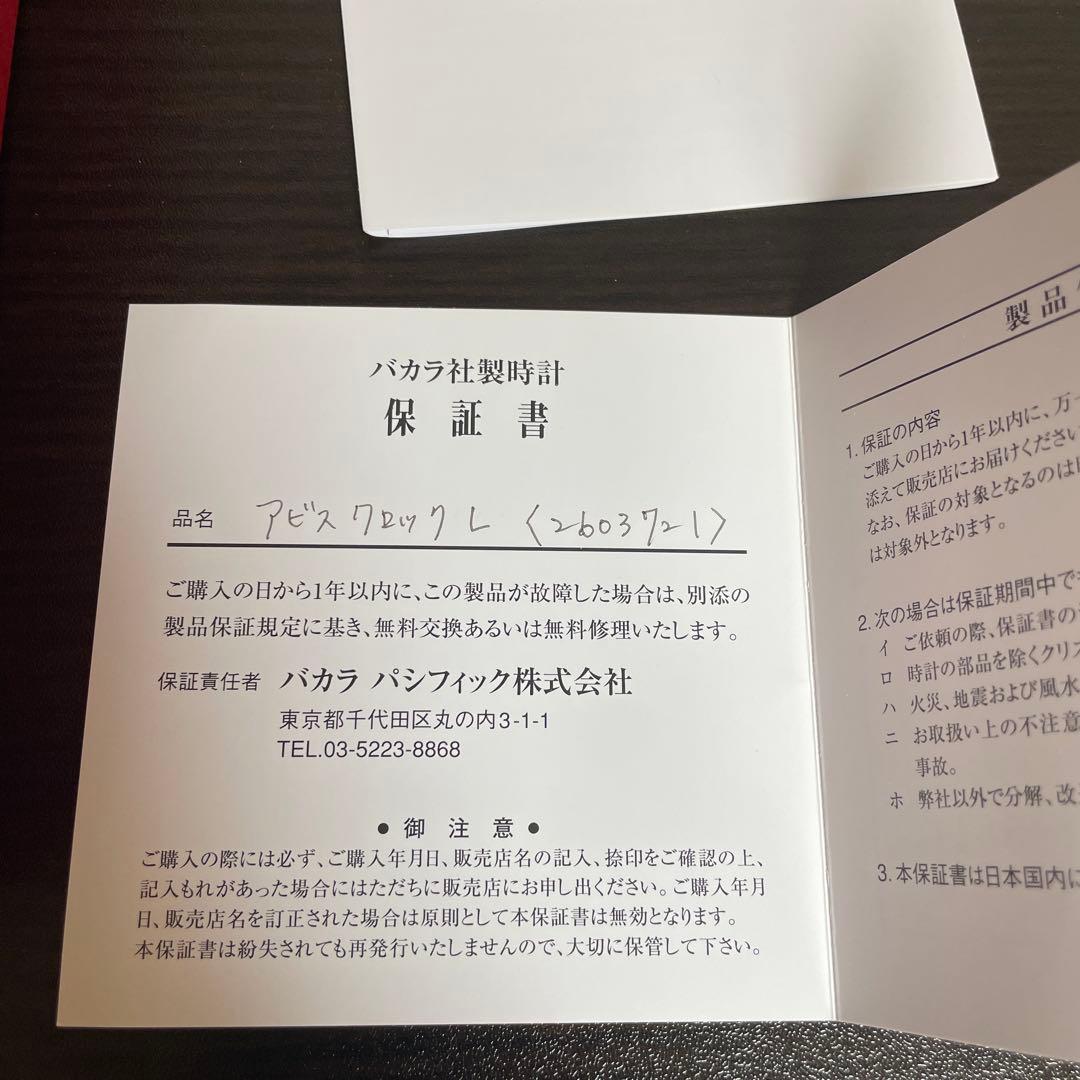 バカラ社製時計
保証書
品名 アビス クロック L 〈2603721〉
ご購入の日から1年以内に、この製品が故障した場合は、別添の
製品保証規定に基き、無料交換あるいは無料修理いたします。
保証責任者 バカラ パシフィック株式会社
東京都千代田区丸の内3-1-1
TEL.03-5223-8868
● 御 注 意 ●
ご購入の際には必ず、ご購入年月日、販売店名の記入、捺印をご確認の上、
記入もれがあった場合にはただちに販売店にお申し出ください。ご購入年月
日、販売店名を訂正された場合は原則として本保証書は無効となります。
本保証書は紛失されても再発行いたしませんので、大切に保管して下さい。
製品
1. 保証の内容
ご購入の日から1年以内に、万一
添えて販売店にお届けください
なお、保証の対象となるのは
は対象外となります。
2. 次の場合は保証期間中で
イ ご依頼の際、保証書の
ロ 時計の部品を除くクリス
ハ 火災、地震および風水
ニ お取扱い上の不注意
事故。
ホ 弊社以外で分解、改
3. 本保証書は日本国内に